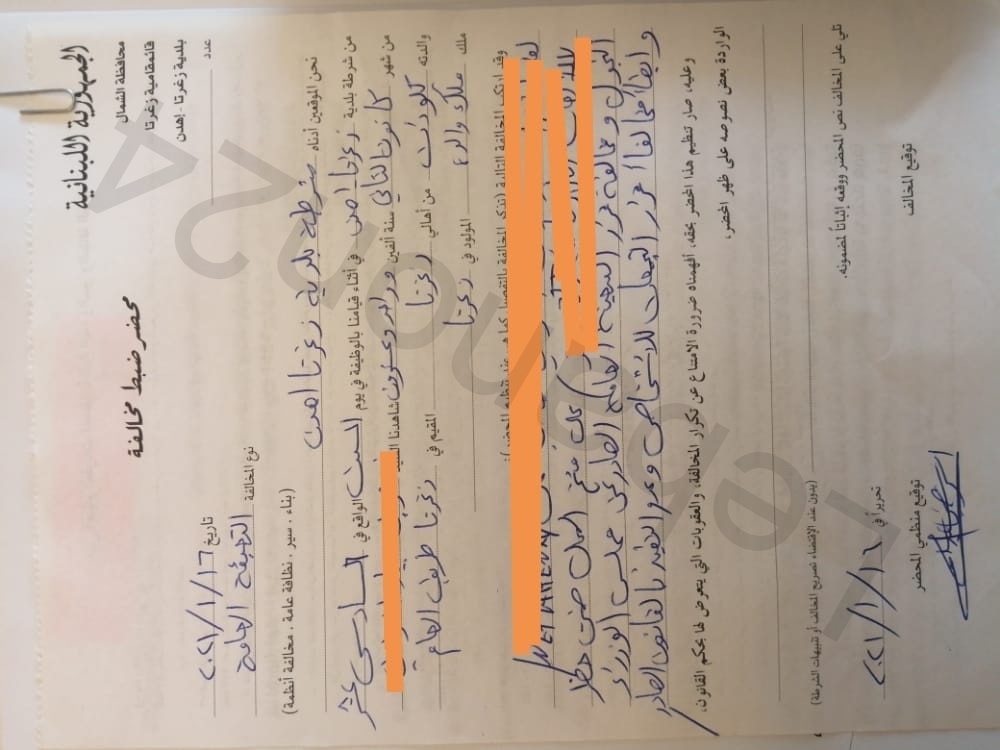 الجمهورية اللبنانية
محافظة الشمال
قائمقامية زغرتا
بلدية زغرتا - إهدن
عدد
محضر ضبط مخالفة
تاريخ ٢٠٢١/١/١٦
نوع المخالفة التعبئة العامة
(بناء ، سير ، نظافة عامة ، مخالفة أنظمة)
نحن الموقعين أدناه شرطة بلدية زغرتا اهدن
من شرطة بلدية زغرتا اهدن في أثناء قيامنا بالوظيفة في يوم السبت الواقع في السادس عشر
من شهر كانون الثاني سنة ألفين وواحد وعشرون شاهدنا السيد
والدته كلودات من أهالي زغرتا المقيم في زغرتا طريق العام
ملك والده المولود في زغرتا
وقد ارتكب المخالفة التالية (تذكر المخالفة بالتفصيل كما هي عند تنظيم المحضر):
كان فتح المحل ضمن حظر
التجول ومخالفة قرار التعبئة العامة الصادر عن مجلس الوزراء
وايضا مخالفا قرار التجمعات للاشخاص وعدم التقيد بالقانون الصادر
وعليه، صار تنظيم هذا المحضر بحقه، أفهمناه ضرورة الامتناع عن تكرار المخالفة، والعقوبات التي يتعرض لها بحكم القانون،
الواردة بعض نصوصه على ظهر المحضر،
(يدون عند الإقتضاء تصريح المخالف أو تنبيهات الشرطة)
تلي على المخالف نص المحضر ووقعه إثباتاً لمضمونه.
تحريراً في ٢٠٢١/١/١٦
توقيع المخالف
توقيع منظمي المحضر
Lebanon24